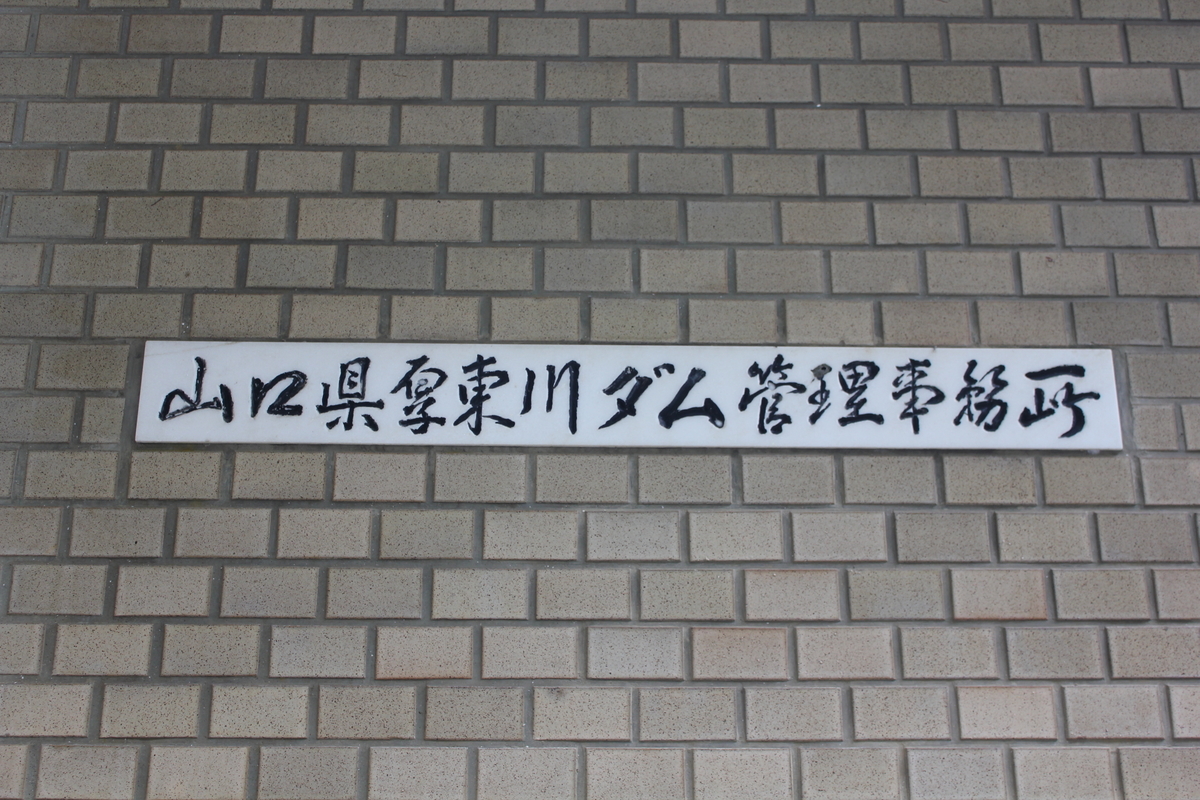 山口県厚東川ダム管理事務所